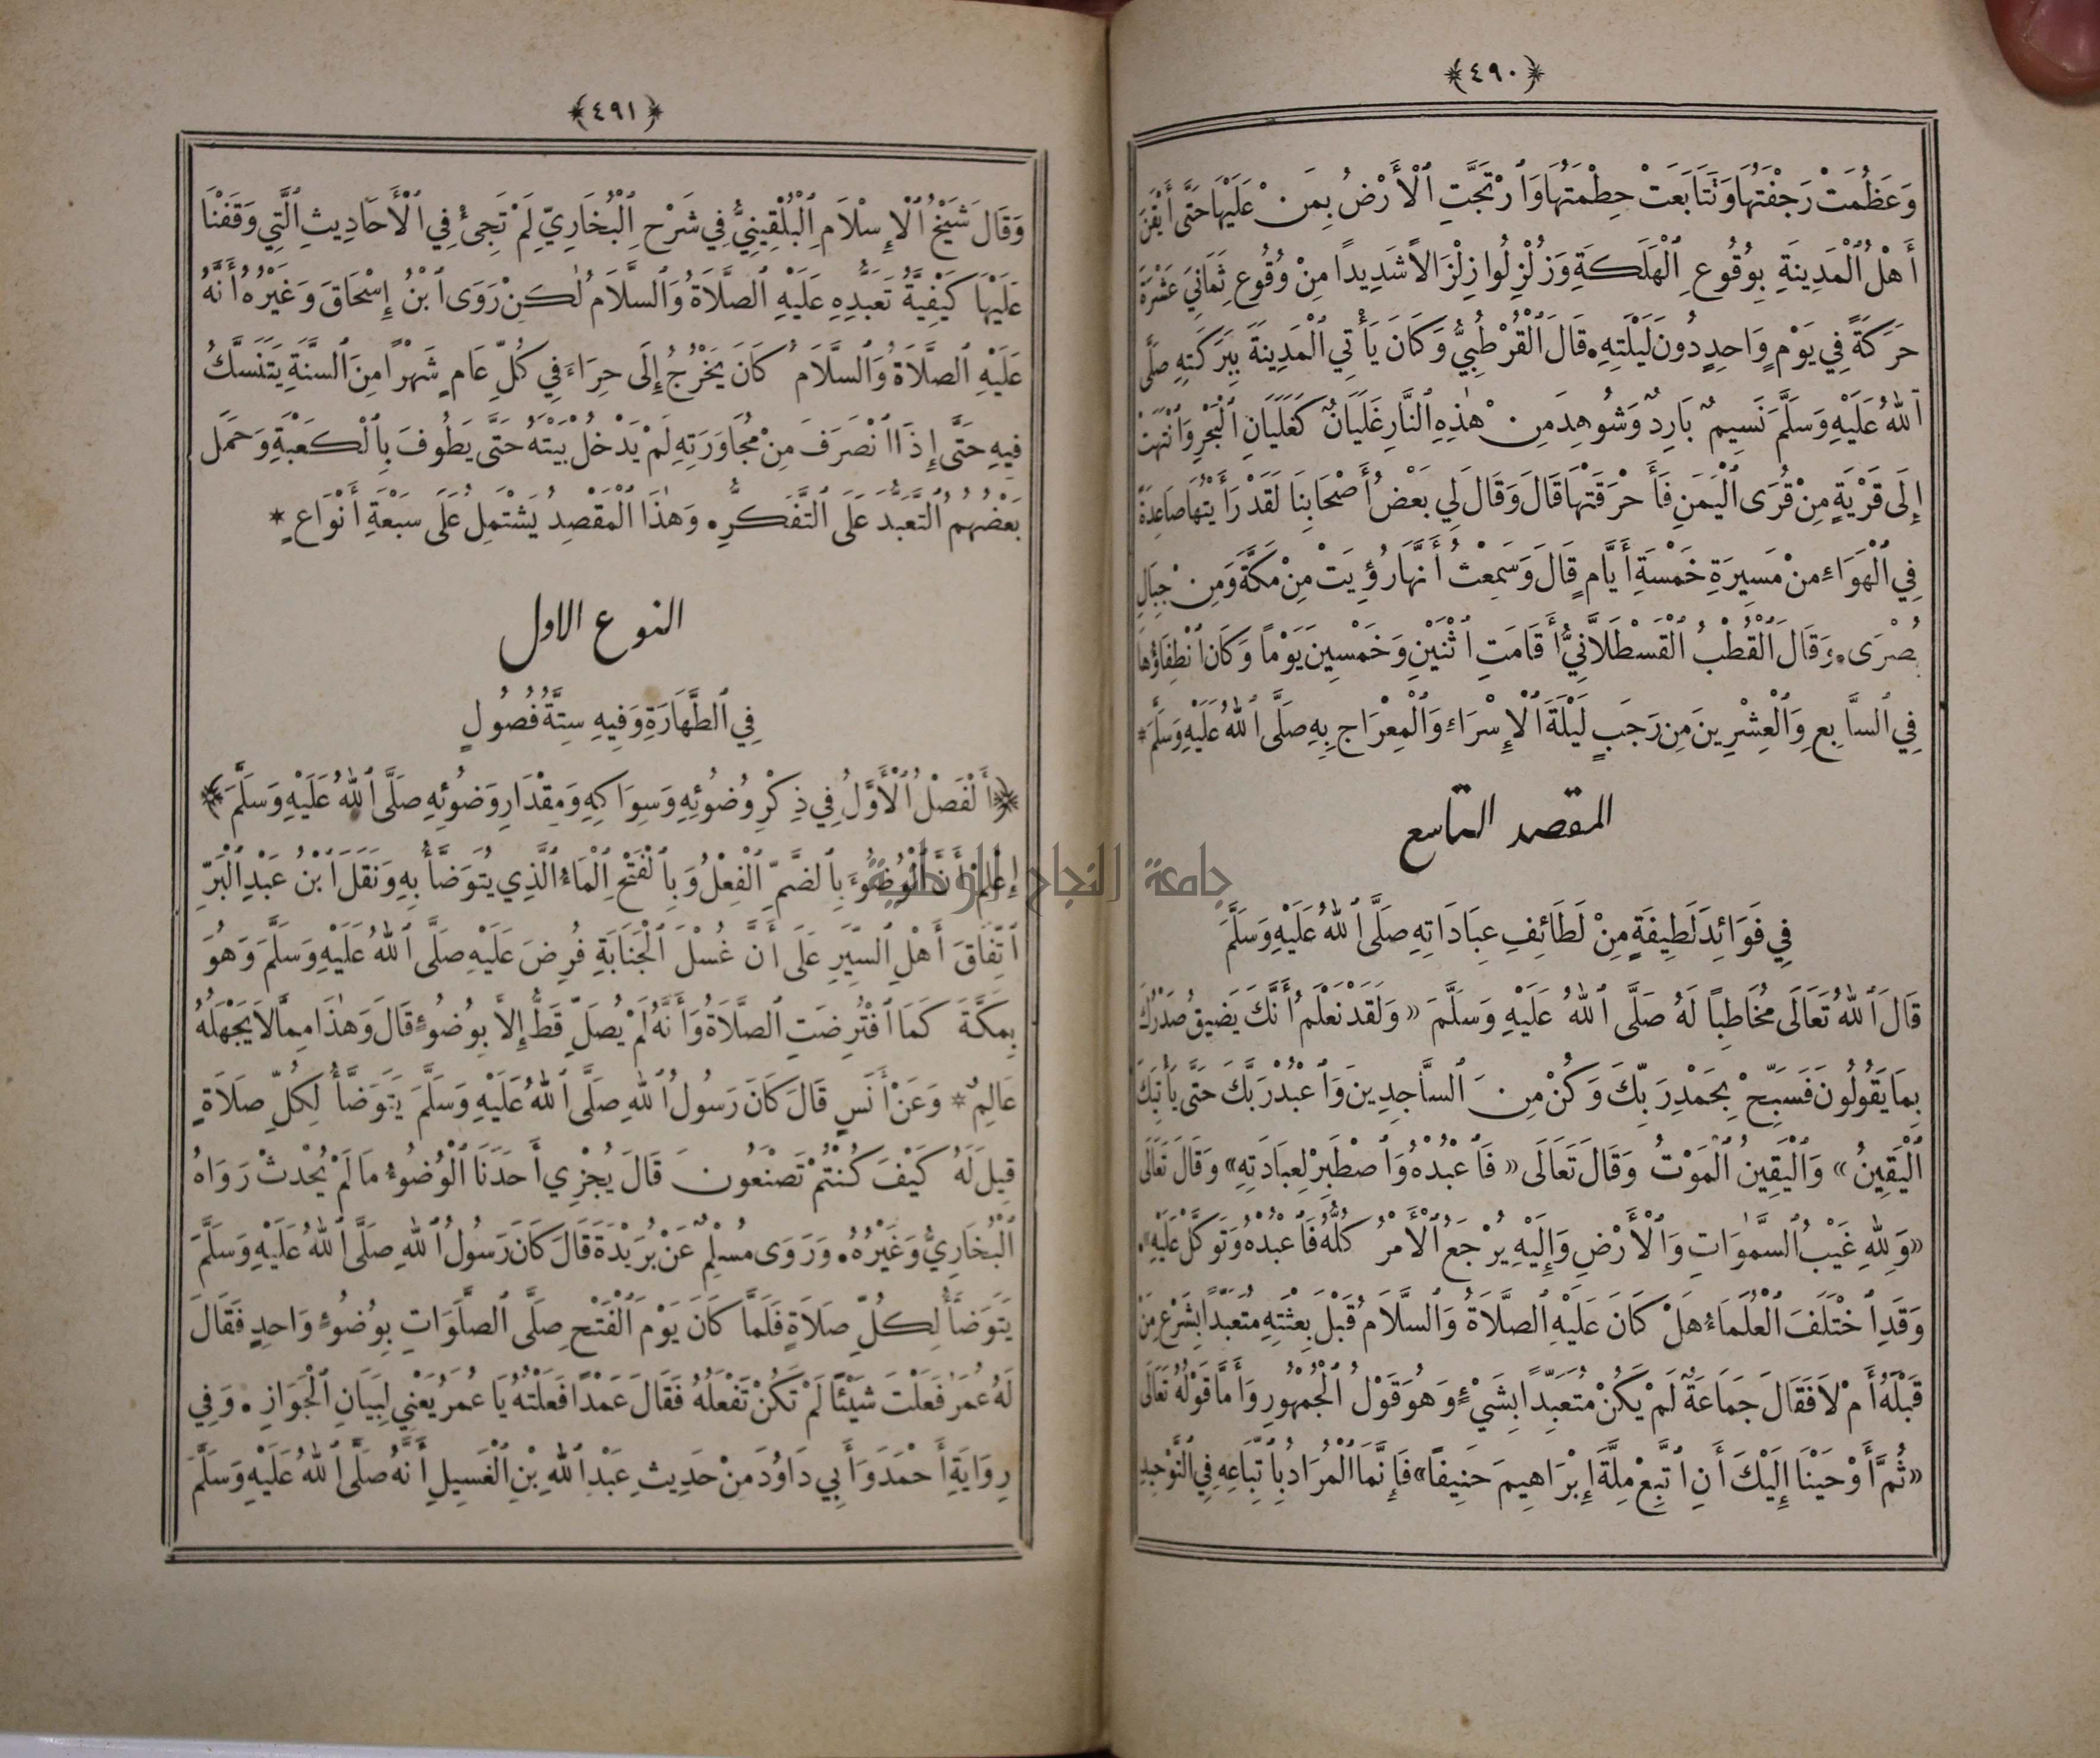 ﴿٤٩٠﴾
وَعَظُمَتْ رَجْفَتُهَا وَتَتَابَعَتْ حِطْمَتُهَا وَارْتَجَّتِ ٱلْأَرْضُ بِمَنْ عَلَيْهَا حَتَّى أَيْقَنَ
أَهْلُ ٱلْمَدِينَةِ بِوُقُوعِ ٱلْهَلَكَةِ وَزُلْزِلُوا زِلْزَالاً شَدِيداً مِنْ وُقُوعِ ثَمَانِيَ عَشْرَةَ
حَرَكَةً فِي يَوْمٍ وَاحِدٍ دُونَ لَيْلَتِهِ. قَالَ ٱلْقُرْطُبِيُّ وَكَانَ يَأْتِي ٱلْمَدِينَةَ بِبَرَكَتِهِ صَلَّى
ٱللهُ عَلَيْهِ وَسَلَّمَ نَسِيمٌ بَارِدٌ وَشُوهِدَ مِنْ هٰذِهِ ٱلنَّارِ غَلَيَانٌ كَغَلَيَانِ ٱلْبَحْرِ وَٱنْتَهَتْ
إِلَى قَرْيَةٍ مِنْ قُرَى ٱلْيَمَنِ فَأَحْرَقَتْهَا قَالَ وَقَالَ لِي بَعْضُ أَصْحَابِنَا لَقَدْ رَأَيْتُهَا صَاعِدَةً
فِي ٱلْهَوَاءِ مِنْ مَسِيرَةِ خَمْسَةِ أَيَّامٍ قَالَ وَسَمِعْتُ أَنَّهَا رُؤِيَتْ مِنْ مَكَّةَ وَمِنْ جِبَالِ
بُصْرَى. وَقَالَ ٱلْقُطْبُ ٱلْقَسْطَلَّانِيُّ أَقَامَتِ ٱثْنَيْنِ وَخَمْسِينَ يَوْماً وَكَانَ ٱنْطِفَاؤُهَا
فِي ٱلسَّابِعِ وَٱلْعِشْرِينَ مِنْ رَجَبٍ لَيْلَةَ ٱلْإِسْرَاءِ وَٱلْمِعْرَاجِ بِهِ صَلَّى ٱللهُ عَلَيْهِ وَسَلَّمَ *
المقصد التاسع
فِي فَوَائِدَ لَطِيفَةٍ مِنْ لَطَائِفِ عِبَادَاتِهِ صَلَّى ٱللهُ عَلَيْهِ وَسَلَّمَ
قَالَ ٱللهُ تَعَالَى مُخَاطِباً لَهُ صَلَّى ٱللهُ عَلَيْهِ وَسَلَّمَ «وَلَقَدْ نَعْلَمُ أَنَّكَ يَضِيقُ صَدْرُكَ
بِمَا يَقُولُونَ فَسَبِّحْ بِحَمْدِ رَبِّكَ وَكُنْ مِنَ ٱلسَّاجِدِينَ وَٱعْبُدْ رَبَّكَ حَتَّى يَأْتِيَكَ
ٱلْيَقِينُ» وَٱلْيَقِينُ ٱلْمَوْتُ وَقَالَ تَعَالَى «فَٱعْبُدْهُ وَٱصْطَبِرْ لِعِبَادَتِهِ» وَقَالَ تَعَالَى
«وَلِلّٰهِ غَيْبُ ٱلسَّمٰوَاتِ وَٱلْأَرْضِ وَإِلَيْهِ يُرْجَعُ ٱلْأَمْرُ كُلُّهُ فَٱعْبُدْهُ وَتَوَكَّلْ عَلَيْهِ».
وَقَدِ ٱخْتَلَفَ ٱلْعُلَمَاءُ هَلْ كَانَ عَلَيْهِ ٱلصَّلَاةُ وَٱلسَّلَامُ قَبْلَ بِعْثَتِهِ مُتَعَبِّداً بِشَرْعِ مَنْ
قَبْلَهُ أَمْ لَا فَقَالَ جَمَاعَةٌ لَمْ يَكُنْ مُتَعَبِّداً بِشَيْءٍ وَهُوَ قَوْلُ ٱلْجُمْهُورِ وَأَمَّا قَوْلُهُ تَعَالَى
«ثُمَّ أَوْحَيْنَا إِلَيْكَ أَنِ ٱتَّبِعْ مِلَّةَ إِبْرَاهِيمَ حَنِيفاً» فَإِنَّمَا ٱلْمُرَادُ بِٱتِّبَاعِهِ فِي ٱلتَّوْحِيدِ
﴿٤٩١﴾
وَقَالَ شَيْخُ ٱلْإِسْلَامِ ٱلْبُلْقِينِيُّ فِي شَرْحِ ٱلْبُخَارِيِّ لَمْ تَجِئْ فِي ٱلْأَحَادِيثِ ٱلَّتِي وَقَفْنَا
عَلَيْهَا كَيْفِيَّةُ تَعَبُّدِهِ عَلَيْهِ ٱلصَّلَاةُ وَٱلسَّلَامُ لٰكِنْ رَوَى ٱبْنُ إِسْحَاقَ وَغَيْرُهُ أَنَّهُ
عَلَيْهِ ٱلصَّلَاةُ وَٱلسَّلَامُ كَانَ يَخْرُجُ إِلَى حِرَاءَ فِي كُلِّ عَامٍ شَهْراً مِنَ ٱلسَّنَةِ يَتَنَسَّكُ
فِيهِ حَتَّى إِذَا ٱنْصَرَفَ مِنْ مُجَاوَرَتِهِ لَمْ يَدْخُلْ بَيْتَهُ حَتَّى يَطُوفَ بِٱلْكَعْبَةِ وَحَمَلَ
بَعْضُهُمُ ٱلتَّعَبُّدَ عَلَى ٱلتَّفَكُّرِ. وَهٰذَا ٱلْمَقْصِدُ يُشْتَمِلُ عَلَى سَبْعَةِ أَنْوَاعٍ *
النوع الاول
فِي ٱلطَّهَارَةِ وَفِيهِ سِتَّةُ فُصُولٍ
﴿أَلْفَصْلُ ٱلْأَوَّلُ فِي ذِكْرِ وُضُوئِهِ وَسِوَاكِهِ وَمِقْدَارِ وَضُوئِهِ صَلَّى ٱللهُ عَلَيْهِ وَسَلَّمَ﴾
إِعْلَمْ أَنَّ ٱلْوُضُوءَ بِٱلضَّمِّ ٱلْفِعْلُ وَبِٱلْفَتْحِ ٱلْمَاءُ ٱلَّذِي يُتَوَضَّأُ بِهِ وَنَقَلَ ٱبْنُ عَبْدِ ٱلْبَرِّ
ٱتِّفَاقَ أَهْلِ ٱلسِّيَرِ عَلَى أَنَّ غُسْلَ ٱلْجَنَابَةِ فُرِضَ عَلَيْهِ صَلَّى ٱللهُ عَلَيْهِ وَسَلَّمَ وَهُوَ
بِمَكَّةَ كَمَا ٱفْتُرِضَتِ ٱلصَّلَاةُ وَأَنَّهُ لَمْ يُصَلِّ قَطُّ إِلَّا بِوُضُوءٍ قَالَ وَهٰذَا مِمَّا لَا يَجْهَلُهُ
عَالِمٌ * وَعَنْ أَنَسٍ قَالَ كَانَ رَسُولُ ٱللهِ صَلَّى ٱللهُ عَلَيْهِ وَسَلَّمَ يَتَوَضَّأُ لِكُلِّ صَلَاةٍ
قِيلَ لَهُ كَيْفَ كُنْتُمْ تَصْنَعُونَ قَالَ يُجْزِي أَحَدَنَا ٱلْوُضُوءُ مَا لَمْ يُحْدِثْ رَوَاهُ
ٱلْبُخَارِيُّ وَغَيْرُهُ. وَرَوَى مُسْلِمٌ عَنْ بُرَيْدَةَ قَالَ كَانَ رَسُولُ ٱللهِ صَلَّى ٱللهُ عَلَيْهِ وَسَلَّمَ
يَتَوَضَّأُ لِكُلِّ صَلَاةٍ فَلَمَّا كَانَ يَوْمَ ٱلْفَتْحِ صَلَّى ٱلصَّلَوَاتِ بِوُضُوءٍ وَاحِدٍ فَقَالَ
لَهُ عُمَرُ فَعَلْتَ شَيْئاً لَمْ تَكُنْ تَفْعَلُهُ فَقَالَ عَمْداً فَعَلْتُهُ يَا عُمَرُ يَعْنِي لِبَيَانِ ٱلْجَوَازِ. وَفِي
رِوَايَةِ أَحْمَدَ وَأَبِي دَاوُدَ مِنْ حَدِيثِ عَبْدِ ٱللهِ بْنِ ٱلْغَسِيلِ أَنَّهُ صَلَّى ٱللهُ عَلَيْهِ وَسَلَّمَ
جامعة النجاح الوطنية